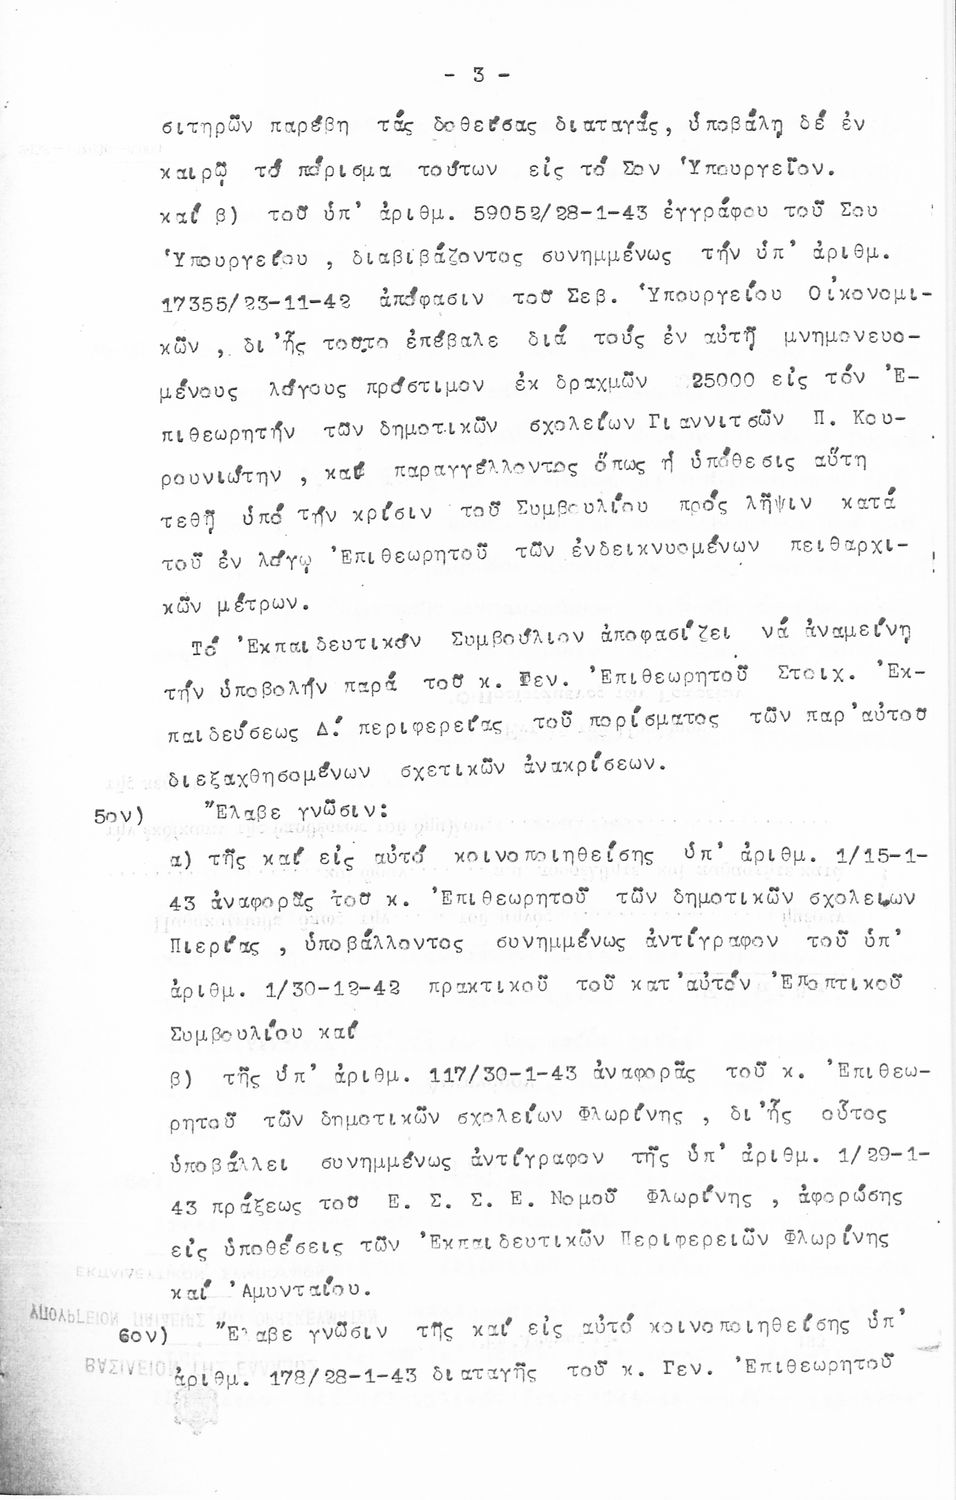 - 3 -
σιτηρῶν παρέβη τάς δοθείσας διαταγάς, ὑποβάλη δέ ἐν
καιρῷ τό πόρισμα τούτων εἰς τό Σον Ὑπουργεῖον.
καί β) τοῦ ὑπ' ἀριθμ. 59052/28-1-43 ἐγγράφου τοῦ Σου
Ὑπουργείου , διαβιβάζοντος συνημμένως τήν ὑπ' ἀριθμ.
17355/23-11-42 ἀπόφασιν τοῦ Σεβ. Ὑπουργείου Οἰκονομι-
κῶν , δι'ἧς τοῦτο ἐπέβαλε διά τούς ἐν αὐτῇ μνημονευο-
μένους λόγους πρόστιμον ἐκ δραχμῶν 25000 εἰς τόν Ἐ-
πιθεωρητήν τῶν δημοτικῶν σχολείων Γιαννιτσῶν Π. Κου-
ρουνιώτην , καί παραγγέλλοντος ὅπως ἡ ὑπόθεσις αὕτη
τεθῇ ὑπό τήν κρίσιν τοῦ Συμβουλίου πρός λῆψιν κατά
τοῦ ἐν λόγῳ Ἐπιθεωρητοῦ τῶν ἐνδεικνυομένων πειθαρχι-
κῶν μέτρων.
Τό Ἐκπαιδευτικόν Συμβούλιον ἀποφασίζει νά ἀναμείνῃ
τήν ὑποβολήν παρά τοῦ κ. Γεν. Ἐπιθεωρητοῦ Στοιχ. Ἐκ-
παιδεύσεως Δ΄ περιφερείας τοῦ πορίσματος τῶν παρ'αὐτοῦ
διεξαχθησομένων σχετικῶν ἀνακρίσεων.
5ον) Ἔλαβε γνῶσιν:
α) τῆς καί εἰς αὐτό κοινοποιηθείσης ὑπ' ἀριθμ. 1/15-1-
43 ἀναφορᾶς τοῦ κ. Ἐπιθεωρητοῦ τῶν δημοτικῶν σχολείων
Πιερίας , ὑποβάλλοντος συνημμένως ἀντίγραφον τοῦ ὑπ'
ἀριθμ. 1/30-12-42 πρακτικοῦ τοῦ κατ'αὐτόν Ἐποπτικοῦ
Συμβουλίου καί
β) τῆς ὑπ' ἀριθμ. 117/30-1-43 ἀναφορᾶς τοῦ κ. Ἐπιθεω-
ρητοῦ τῶν δημοτικῶν σχολείων Φλωρίνης , δι'ἧς οὗτος
ὑποβάλλει συνημμένως ἀντίγραφον τῆς ὑπ' ἀριθμ. 1/29-1-
43 πράξεως τοῦ Ε. Σ. Σ. Ε. Νομοῦ Φλωρίνης , ἀφορώσης
εἰς ὑποθέσεις τῶν Ἐκπαιδευτικῶν Περιφερειῶν Φλωρίνης
καί Ἀμυνταίου.
6ον) Ἔλαβε γνῶσιν τῆς καί εἰς αὐτό κοινοποιηθείσης ὑπ'
ἀριθμ. 178/28-1-43 διαταγῆς τοῦ κ. Γεν. Ἐπιθεωρητοῦ